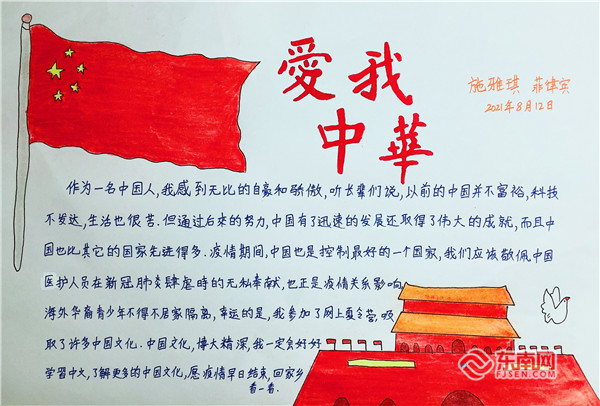 愛我
中華
施雅琪 菲律宾
2021年8月12日
作为一名中国人,我感到无比的自豪和骄傲,听长辈们说,以前的中国并不富裕,科技
不发达,生活也很苦.但通过后来的努力,中国有了迅速的发展还取得了伟大的成就,而且中
国也比其它的国家先进得多.疫情期间,中国也是控制最好的一个国家,我们应该敬佩中国
医护人员在新冠肺炎肆虐時的无私奉献,也正是疫情关系影响,
海外华裔青少年不得不居家隔离,幸运的是,我参加了网上夏令营,吸
取了许多中国文化.中国文化,博大精深,我一定会好好
学習中文,了解更多的中国文化,愿疫情早日结束,回家乡
看一看.
东南网
FJSEN.COM